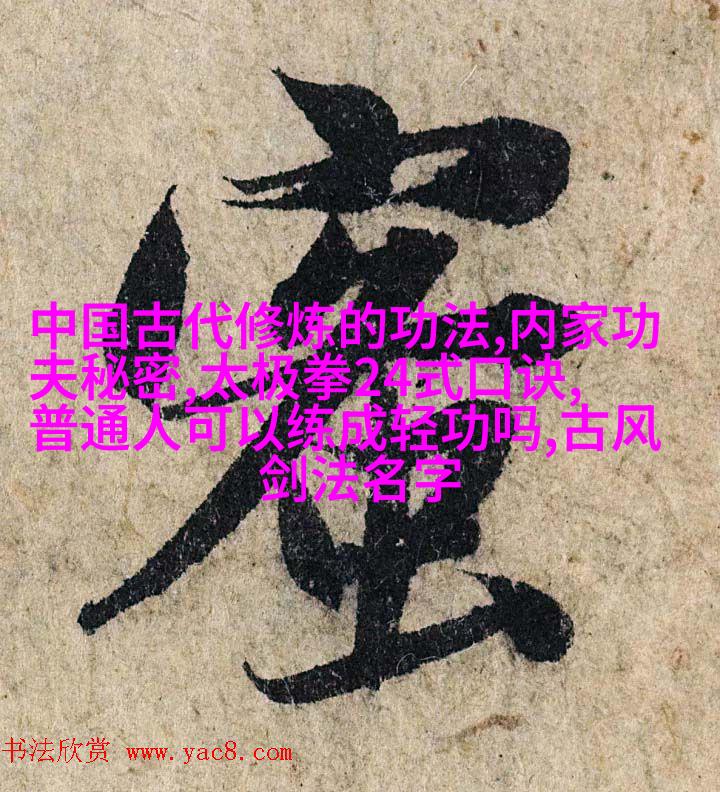 中国古代修炼的功法,内家功
夫秘密,太极拳24式口诀,
普通人可以练成轻功吗,古风
剑法名字
书法欣赏 www.yac8.com